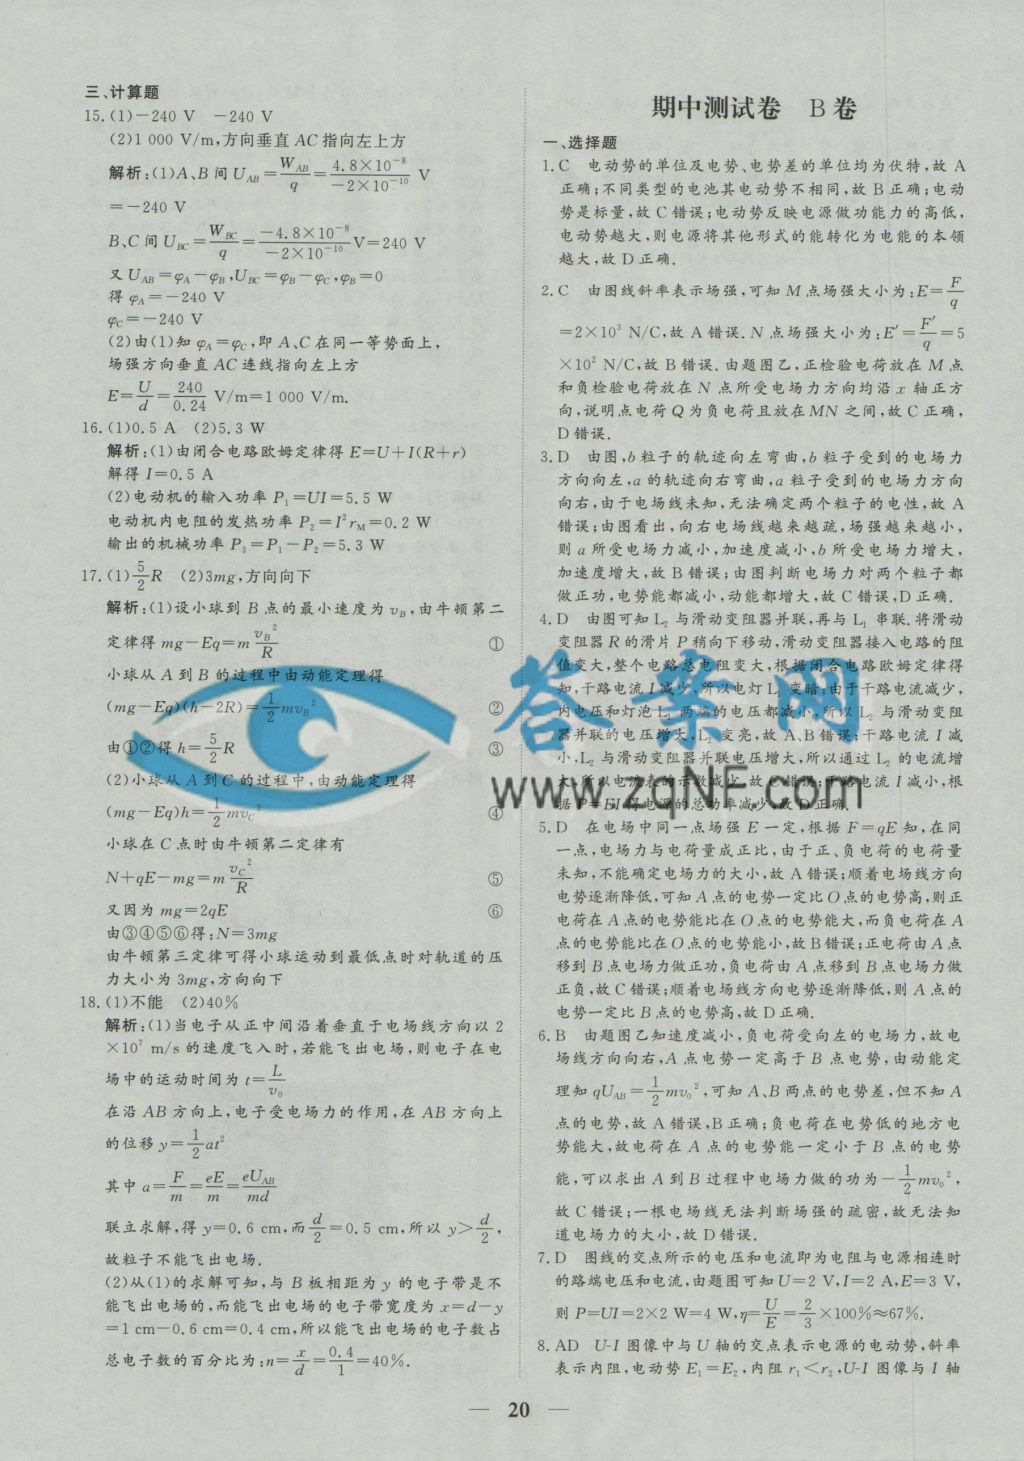 三、计算题
15.(1)-240 V　-240 V
(2)1 000 V/m,方向垂直 AC 指向左上方
解析:(1)A、B 间 U_AB=W_AB/q=4.8×10⁻⁸/-2×10⁻¹⁰ V
=-240 V
B、C 间 U_BC=W_BC/q=-4.8×10⁻⁸/-2×10⁻¹⁰ V=240 V
又 U_AB=φ_A-φ_B,U_BC=φ_B-φ_C,φ_B=0
得 φ_A=-240 V
φ_C=-240 V
(2)由(1)知 φ_A=φ_C,即 A、C 在同一等势面上,
场强方向垂直 AC 连线指向左上方
E=U/d=240/0.24 V/m=1 000 V/m.
16.(1)0.5 A　(2)5.3 W
解析:(1)由闭合电路欧姆定律得 E=U+I(R+r)
解得 I=0.5 A
(2)电动机的输入功率 P₁=UI=5.5 W
电动机内电阻的发热功率 P₂=I²r_M=0.2 W
输出的机械功率 P₃=P₁-P₂=5.3 W
17.(1)5/2R　(2)3mg,方向向下
解析:(1)设小球到 B 点的最小速度为 v_B,由牛顿第二
定律得 mg-Eq=m v_B²/R ①
小球从 A 到 B 的过程中由动能定理得
(mg-Eq)(h-2R)=1/2mv_B² ②
由①②得 h=5/2R ③
(2)小球从 A 到 C 的过程中,由动能定理得
(mg-Eq)h=1/2mv_C² ④
小球在 C 点时由牛顿第二定律有
N+qE-mg=m v_C²/R ⑤
又因为 mg=2qE ⑥
由③④⑤⑥得:N=3mg
由牛顿第三定律可得小球运动到最低点时对轨道的压
力大小为 3mg,方向向下
18.(1)不能　(2)40%
解析:(1)当电子从正中间沿着垂直于电场线方向以 2
×10⁷ m/s 的速度飞入时,若能飞出电场,则电子在电
场中的运动时间为 t=L/v₀
在沿 AB 方向上,电子受电场力的作用,在 AB 方向上
的位移 y=1/2at²
其中 a=F/m=eE/m=eU_AB/md
联立求解,得 y=0.6 cm,而d/2=0.5 cm,所以 y>d/2,
故粒子不能飞出电场.
(2)从(1)的求解可知,与 B 板相距为 y 的电子带是不
能飞出电场的,而能飞出电场的电子带宽度为 x=d-y
=1 cm-0.6 cm=0.4 cm,所以能飞出电场的电子数占
总电子数的百分比为:n=x/d=0.4/1=40%.
期中测试卷　B 卷
一、选择题
1.C　电动势的单位及电势、电势差的单位均为伏特,故 A
正确;不同类型的电池其电动势不相同,故 B 正确;电动
势是标量,故 C 错误;电动势反映电源做功能力的高低,
电动势越大,则电源将其他形式的能转化为电能的本领
越大,故 D 正确.
2.C　由图线斜率表示场强,可知 M 点场强大小为:E=F/q
=2×10³ N/C,故 A 错误.N 点场强大小为:E′=F′/q=5
×10² N/C,故 B 错误.由题图乙,正检验电荷放在 M 点
和负检验电荷放在 N 点所受电场力方向均沿 x 轴正方
向,说明点电荷 Q 为负电荷且放在MN 之间,故 C 正确,
D 错误.
3.D　由图,b 粒子的轨迹向左弯曲,b 粒子受到的电场力
方向向左,a 的轨迹向右弯曲,a 粒子受到的电场力方向
向右,由于电场线未知,无法确定两个粒子的电性,故 A
错误;由图看出,向右电场线越来越疏,场强越来越小,
则 a 所受电场力减小,加速度减小,b 所受电场力增大,
加速度增大,故 B 错误;由图判断电场力对两个粒子都
做正功,电势能都减小,动能都增大,故 C 错误,D 正确.
4.D　由图可知 L₂ 与滑动变阻器并联,再与 L₁ 串联.将滑动
变阻器 R 的滑片 P 稍向下移动,滑动变阻器接入电路的阻
值变大,整个电路总电阻变大,根据闭合电路欧姆定律得
知,干路电流 I 减少,所以电灯 L₁ 变暗;由于干路电流减少,
内电压和灯泡 L₁ 两端的电压都减小,所以 L₂ 与滑动变阻
器并联的电压增大,L₂ 变亮,故 A、B 错误;干路电流 I 减
小,L₂ 与滑动变阻器并联电压增大,所以通过 L₂ 的电流增
大,所以电流表的示数减少,故 C 错误;干路电流 I 减小,根
据 P=EI 得电源的总功率减少,故 D 正确.
5.D　在电场中同一点场强 E 一定,根据 F=qE 知,在同
一点,电场力与电荷量成正比,由于正、负电荷的电荷量
未知,不能确定电场力的大小,故 A 错误;顺着电场线方向
电势逐渐降低,可知 A 点的电势一定比O 点的电势高,则正
电荷在 A 点的电势能比在 O 点的电势能大,而负电荷在 A
点的电势能比在 O 点的电势能小,故 B 错误;正电荷由 A 点
移到 B 点电场力做正功,负电荷由 A 点移到 B 点电场力做
正负,故 C 错误;顺着电场线方向电势逐渐降低,则 A 点的
电势一定比 B 点的电势高,故 D 正确.
6.B　由题图乙知速度减小,负电荷受向左的电场力,故电
场线方向向右,A 点电势一定高于 B 点电势,由动能定
理知 qU_AB=1/2mv₀²,可知 A、B 两点的电势差,但不知 A
点的电势,故 A 错误,B 正确;负电荷在电势低的地方电
势能大,故电荷在 A 点的电势能一定小于 B 点的电势
能,可以求出 A 到 B 过程中电场力做的功为-1/2mv₀²,
故 C 错误;一根电场线无法判断场强的疏密,故无法知
道电场力的大小,故 D 错误.
7.D　图线的交点所示的电压和电流即为电阻与电源相连时
的路端电压和电流,由题图可知 U=2 V,I=2 A,E=3 V,
则 P=UI=2×2 W=4 W,η=U/E=2/3×100%≈67%.
8.AD　U-I 图像中与 U 轴的交点表示电源的电动势,斜率
表示内阻,电动势 E₁=E₂,内阻 r₁<r₂,U-I 图像与 I 轴
— 20 —
答案网
www.zqjNF.com